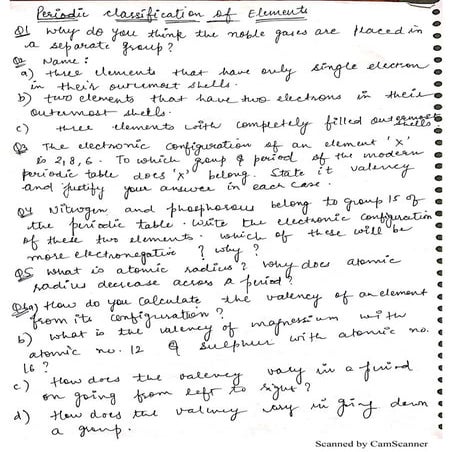 Periodic classification of Elements
Q1 Why do you think the noble gases are placed in
a separate group?
Q2 Name:
a) three elements that have only single electron
in their outermost shells.
b) two elements that have two electrons in their
outermost shells.
c) three elements with completely filled outermost shells
Q3 The electronic configuration of an element 'X'
is 2,8,6. To which group & period of the modern
periodic table does 'X' belong. State it valency
and justify your answer in each case.
Q4 Nitrogen and phosphorous belong to group 15 of
the periodic table. Write the electronic configuration
of these two elements. Which of these will be
more electronegative? Why?
Q5 What is atomic radius? Why does atomic
radius decrease across a period?
Q6a) How do you calculate the valency of an element
from its configuration?
b) What is the valency of magnessium with
atomic no. 12 & sulpher with atomic no.
16?
c) How does the valency vary in a period
on going from left to right?
d) How does the valency vary in going down
a group.
Scanned by CamScanner